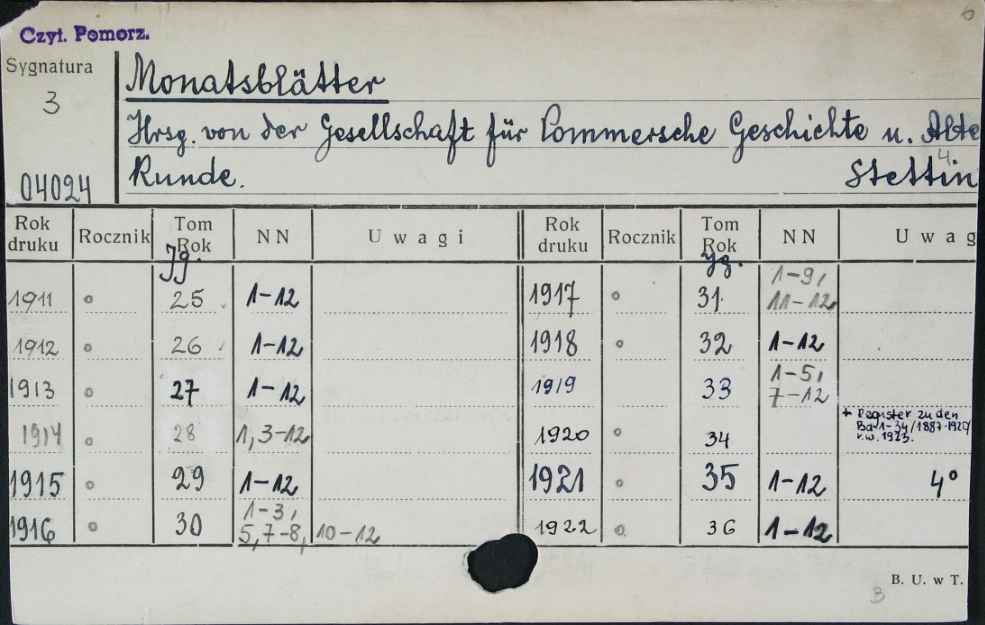 6
Czyt. Pomorz.
Sygnatura
3
04024
Monatsblätter
Hrsg. von der Gesellschaft für Pommersche Geschichte u. Alte
Kunde. 4.
Stettin
Rok druku Rocznik Tom Rok NN Uwagi Rok druku Rocznik Tom Rok NN Uwag
Jg. Jg.
1911 o 25 1-12 1917 o 31 1-9, 11-12
1912 o 26 1-12 1918 o 32 1-12
1913 o 27 1-12 1919 33 1-5, 7-12
1914 o 28 1,3-12 1920 o 34 + Register zu den Bd 1-34/1887-1920/ 1923.
1915 o 29 1-12 1921 o 35 1-12 4°
1916 o 30 1-3, 5,7-8, 10-12 1922 o 36 1-12
B. U. w T.
3